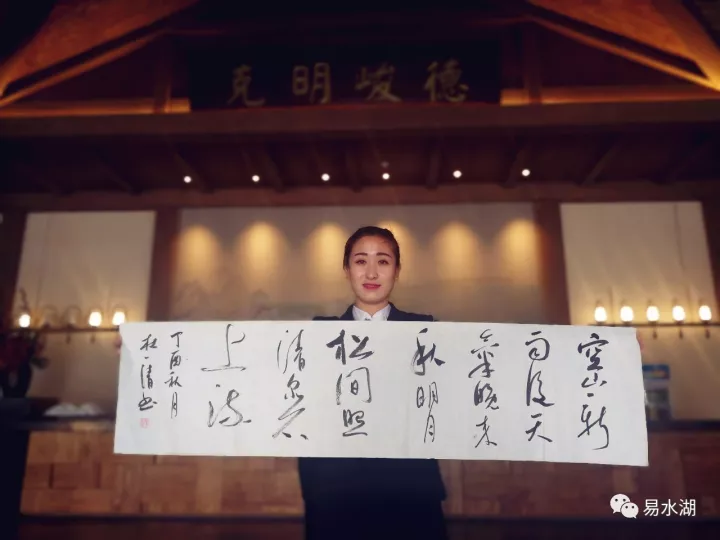 克明峻德
空山新
雨後天
氣晚来
秋明月
松间照
清泉石
上流
丁酉秋月
杜一清书
易水湖